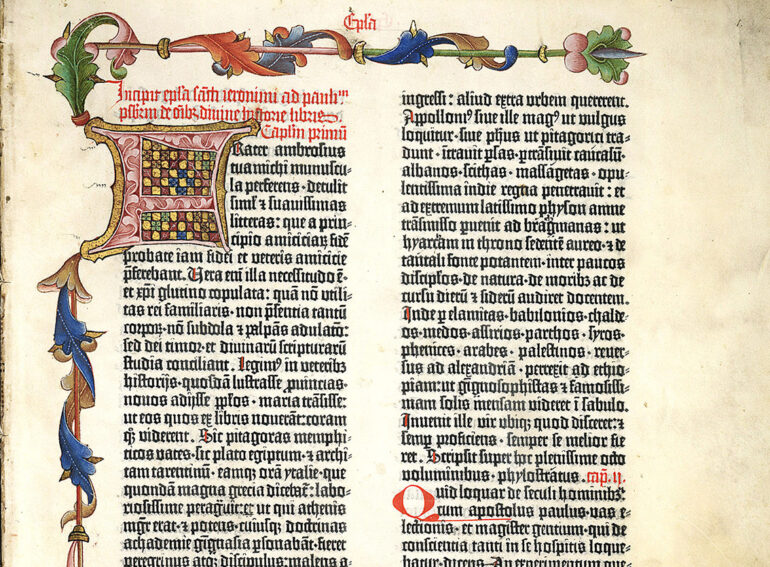 Epl̃a
Incipit epl̃a sãcti ieronimi ad paulinũ
p̃sbiterũ de õnibꝫ diuine historie libris.
Capl̃m primũ
Frater ambrosius
tua michi munuscu-
la perferens · detulit
simĩ et suauissimas
litteras: que a prin-
cipio amiciciaꝝ · fidẽ
probate iam fidei et veteris amicicie
p̃ferebant. Uera enĩ illa necessitudo ẽ ·
et xp̃i glutino copulata: quã nõ utili-
tas rei familiaris · non p̃sentia tantũ
corpoꝝ · nõ subdola et palpãs adulatõ:
sed dei timor · et diuinaꝝ scripturarũ
studia conciliant. Legimꝰ in veteribꝫ
historijs · quosdã lustrasse ꝓuincias ·
nouos adijsse pp̃los · maria trãsisse:
ut eos quos ex libris nouerãt: coram
qꝫ viderent. Sic pitagoras memphi-
ticos vates · sic plato egiptum · et archi-
tam tarentinũ · eamqꝫ orã ytalie · que
quondã magna grecia dicebat̃: labo-
riosissime peragrauit: et ut qui athenis
mgr̃ erat · et potens · cuiusqꝫ doctrinas
achademie gignasia ꝑsonabãt · fieret
peregrinus atqꝫ discipulus: malens a-
ingressi: aliud extra urbem quererent.
Appolloniꝰ siue ille magꝰ ut vulgus
loquitur · siue ph̃us · ut pitagorici tra-
dunt · ĩtrauit ꝑsas · ꝑtrãsiuit caucasũ ·
albanos · scithas · massagetas · opu-
lentissima indie regna penetrauit: et
ad extremum latissimo physon amne
trãsmisso puenit ad bragmanas: ut
hyarcam in throno sedentẽ aureo · et de
tantali fonte potantem · inter paucos
discipl̃os · de natura · de moribꝫ ac de
cursu dierũ et siderũ audiret docentem.
Inde ꝑ elamitas · babilonios · chalde-
os · medos · assirios · parthos · syros ·
phenices · arabes · palestinos · reuer-
sus ad alexandriã · perrexit ad ethio-
piam: ut gignosophistas et famosissi-
mam solis mensam videret ĩ sabulo.
Inuenit ille vir ubiqꝫ quod disceret: et
semꝑ proficiens · semper se melior fie-
ret. Scripsit super hoc plenissime octo
voluminibus · phylostratus. Cap. ii.
Quid loquar de seculi hominibꝫ:
cum apostolus paulus · vas e-
lectionis · et magister gentium · qui de
conscientia tanti in se hospitis loque-
batur · dicens · An experimentum que-